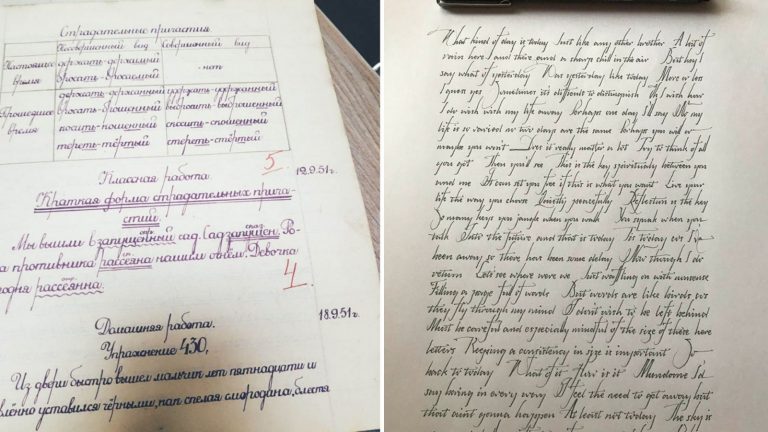 Страдательные причастия.
Несовершенный вид Совершенный вид
Настоящее время
держать-держимый
бросать-бросаемый
- нет
Прошедшее время
держать-держанный удержать-удержанный
бросать-брошенный выбросить-выброшенный
носить-ношенный сносить-сношенный
тереть-тёртый стереть-стёртый
5
12.9.51г.
Классная работа.
Краткая форма страдательных прича-
стий.
Мы вышли в запущенный сад. Сад запущен. Ро-
а противника рассеяна нашим огнём. Девочка
годня рассеянна.
4
18.9.51г.
Домашняя работа.
Упражнение 430.
Из двери быстро вышел мальчик лет пятнадцати и
влённо уставился чёрными, как спелая смородина, блестя
What kind of day is today Just like any other brother A bit of
rain here and there and a sharp chill in the air But hey I
say what of yesterday Was yesterday like today More or less
I guess yes Sometimes it's difficult to distinguish Oh I wish how
I do wish wish my life away Perhaps one day I'll say Oh my
life is so varied no two days are the same Perhaps you will or
maybe you won't Does it really matter a lot Try to think of all
you got Then you'll see This is the key spiritually between you
and me It can set you free if this is what you want Live your
life the way you choose Quietly peacefully Reflection is the key
So many keys you jangle when you walk You speak when you
talk Into the future and that is today It's today cos I've
been away so there has been some delay Now though I do
return Let's see where were we Just waffling on with nonsense
Filling a page full of words But words are like birds as
they fly through my mind I don't wish to be left behind
Must be careful and especially mindful of the size of these here
letters Keeping a consistency in size is important So
back to today What of it How is it Mundane I'd
say boring in every way I feel the need to get away but
that ain't gonna happen At least not today The sky is